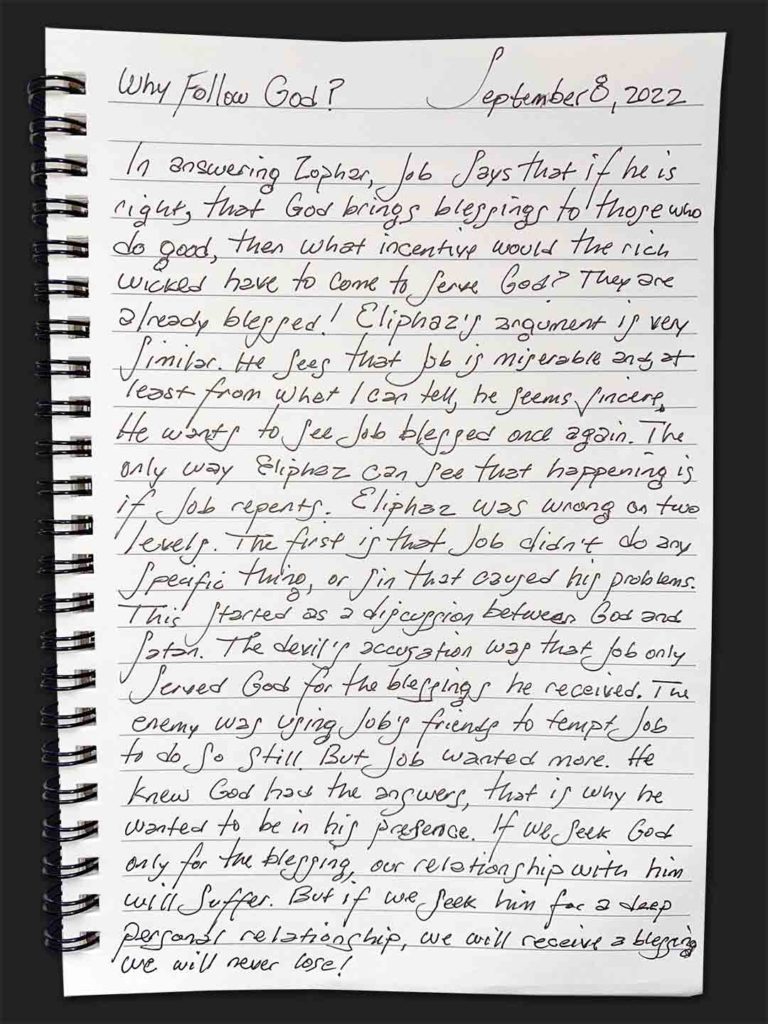 Why Follow God? September 8, 2022
In answering Zophar, Job says that if he is
right, that God brings blessings to those who
do good, then what incentive would the rich
wicked have to come to serve God? They are
already blessed! Eliphaz's argument is very
similar. He sees that Job is miserable and, at
least from what I can tell, he seems sincere.
He wants to see Job blessed once again. The
only way Eliphaz can see that happening is
if Job repents. Eliphaz was wrong on two
levels. The first is that Job didn't do any
specific thing, or sin that caused his problems.
This started as a discussion between God and
Satan. The devil's accusation was that Job only
served God for the blessings he received. The
enemy was using Job's friends to tempt Job
to do so still. But Job wanted more. He
knew God had the answers, that is why he
wanted to be in his presence. If we seek God
only for the blessing, our relationship with him
will suffer. But if we seek him for a deep
personal relationship, we will receive a blessing
we will never lose!